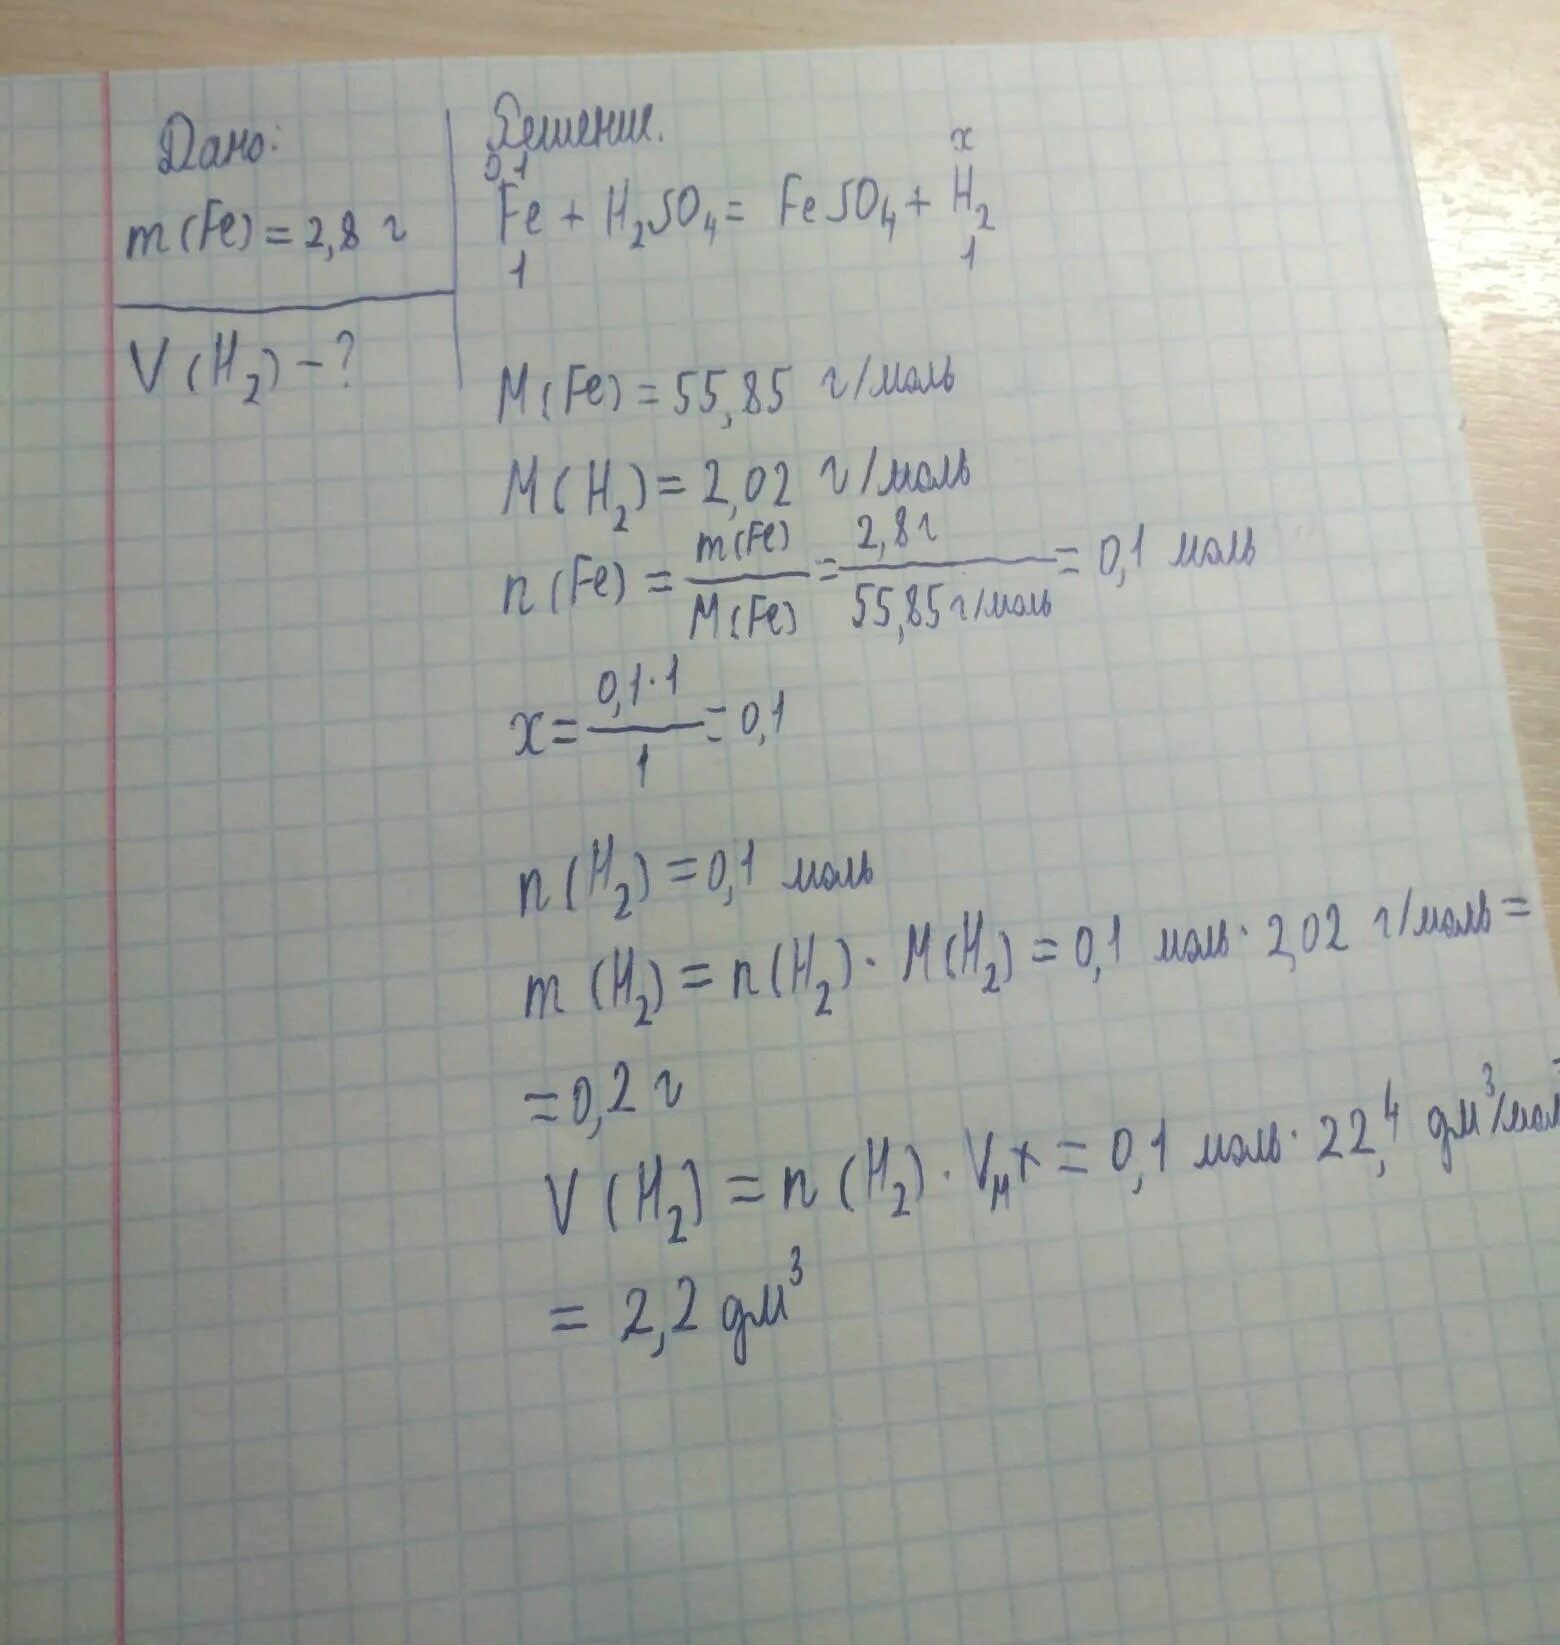 Дано:
m(Fe) = 2,8 г
V(H₂) - ?
Решение.
0,1 x
Fe + H₂SO₄ = FeSO₄ + H₂
1 1
M(Fe) = 55,85 г/моль
M(H₂) = 2,02 г/моль
n(Fe) = m(Fe)/M(Fe) = 2,8 г/55,85 г/моль = 0,1 моль
x = 0,1·1/1 = 0,1
n(H₂) = 0,1 моль
m(H₂) = n(H₂) · M(H₂) = 0,1 моль · 2,02 г/моль =
= 0,2 г
V(H₂) = n(H₂) · Vₘ x = 0,1 моль · 22,4 дм³/мол
= 2,2 дм³